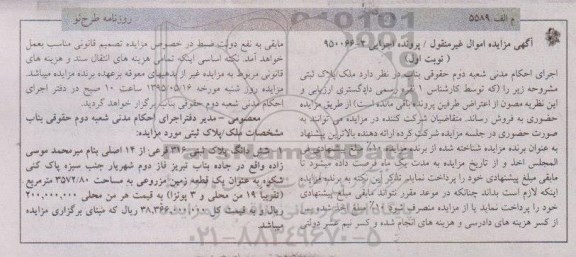 م الف ۵۵۸۹
روزنامه طرح نو
آگهی مزایده اموال غیرمنقول / پرونده اجرایی ۲-۹۵۰۰۶۶
( نوبت اول)
اجرای احکام مدنی شعبه دوم حقوقی بناب در نظر دارد ملک/پلاک ثبتی
مشروحه زیر را (که توسط کارشناس رسمی دادگستری ارزیابی و
این نظریه مصون از اعتراض طرفین پرونده باقی مانده است) از طریق مزایده
حضوری به فروش رساند. متقاضیان شرکت کننده در مزایده می توانند به
صورت حضوری در جلسه مزایده شرکت کرده ارائه دهنده بالاترین پیشنهاد
به عنوان برنده مزایده شناخته شده از برنده مزایده ۱۰٪ مبلغ پیشنهادی فی
المجلس اخذ و از تاریخ مزایده به مدت یک ماه فرصت داده میشود تا
مابقی مبلغ پیشنهادی خود را پرداخت نمایند تذکر این نکته به برنده مزایده
اینکه لازم است بداند چنانکه در موعد مقرر نتواند مابقی مبلغ پیشنهادی
خود را پرداخت نماید یا از مزایده منصرف شود ۱۰٪ مبلغ اخذ شده پس
از کسر هزینه های دادرسی و هزینه های انجام شده و کسر نیم عشر دولتی
مابقی به نفع دولت ضبط در خصوص مزایده تصمیم قانونی مناسب بعمل
خواهد آمد. نکته اساسی اینکه تمامی هزینه های انتقال سند و هزینه های
قانونی مربوط به مزایده غیر از بدهیهای معوقه برعهده برنده مزایده میباشد.
مزایده روز شنبه مورخه ۱۳۹۵/۰۵/۱۶ ساعت ۱۰ صبح در دفتر اجرای
احکام مدنی شعبه دوم حقوقی بناب برگزار خواهد گردید.
معصومی – مدیر دفتراجرای احکام مدنی شعبه دوم حقوقی بناب
مشخصات ملک/پلاک ثبتی مورد مزایده:
شش دانگ پلاک ثبتی فرعی از ۱۴ اصلی بنام میرمحمد موسی
زاده واقع در جاده بناب تبریز فاز دوم شهریار جنب سبزه پاک کنی
شکوه به عنوان یک قطعه زمین مزروعی به مساحت ۳۵۷۲/۸۰ مترمربع
(تقریبا ۱۹ من محلی و ۳ پونزا) به قیمت هر من محلی ۲۰۰,۰۰۰,۰۰۰
ریال و به قیمت کل ریال که مبنای برگزاری مزایده
میباشد
۰۲۱-۸۸۳۴۹۶۷۰-۵